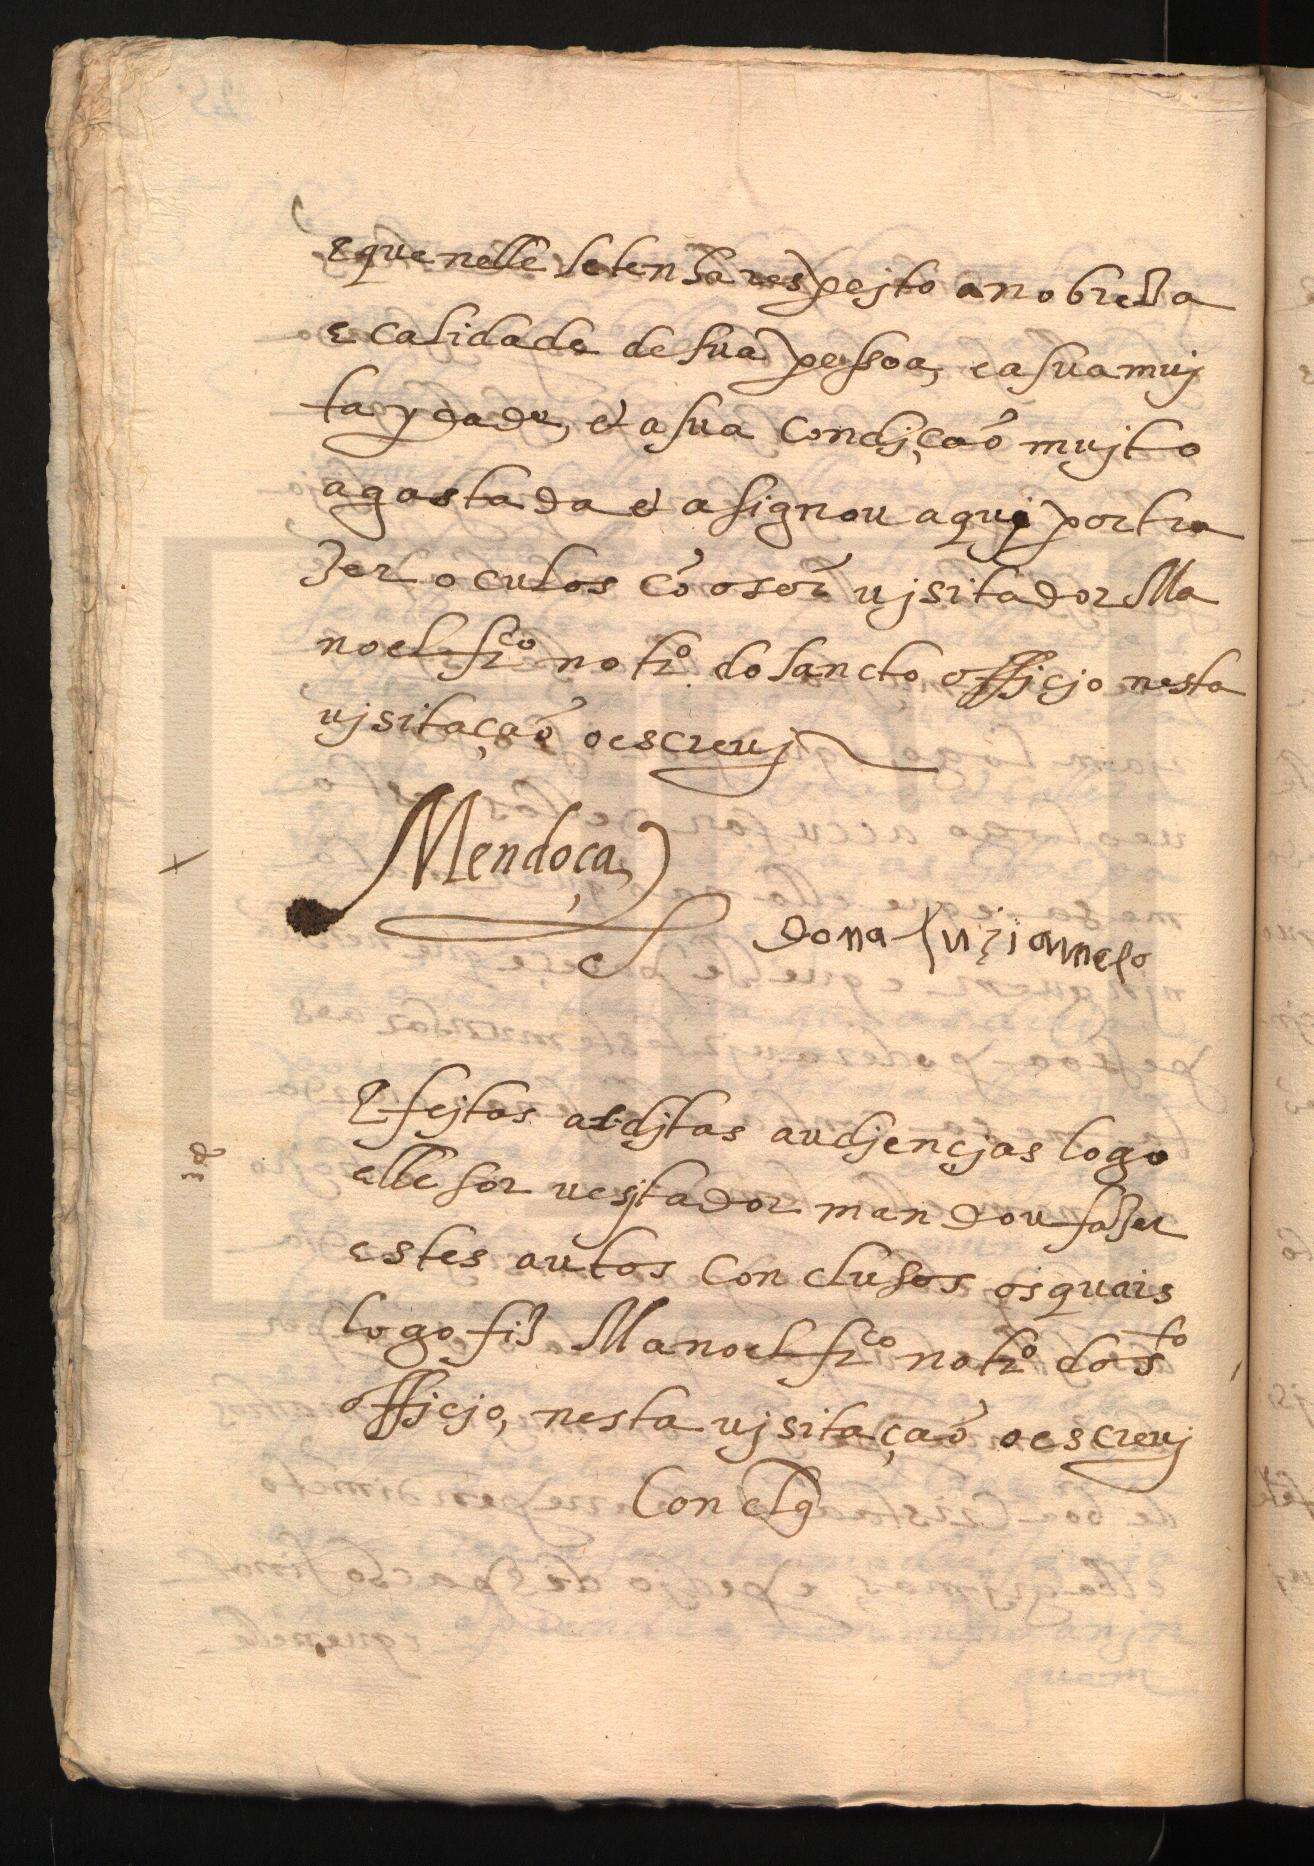 e que nelle se tenha respejto a nobreza
e calidade de sua pessoa, e a sua muj
ta ydade, et a sua condjçaõ mujto
agastada et asignou aquj por tra
zer oculos cõ o sõr vjsitador Ma
noel frco notro do sancto officjo nesta
vjsitaçaõ o escrevj
Mendoça
Dona Luzia
E fejtas as djtas audjençjas logo
elle sõr vesjtador mandou fazer
estes autos conclusos os quais
logo fiz Manoel frco notro do sto
officjo, nesta vjsitaçaõ o escrevj